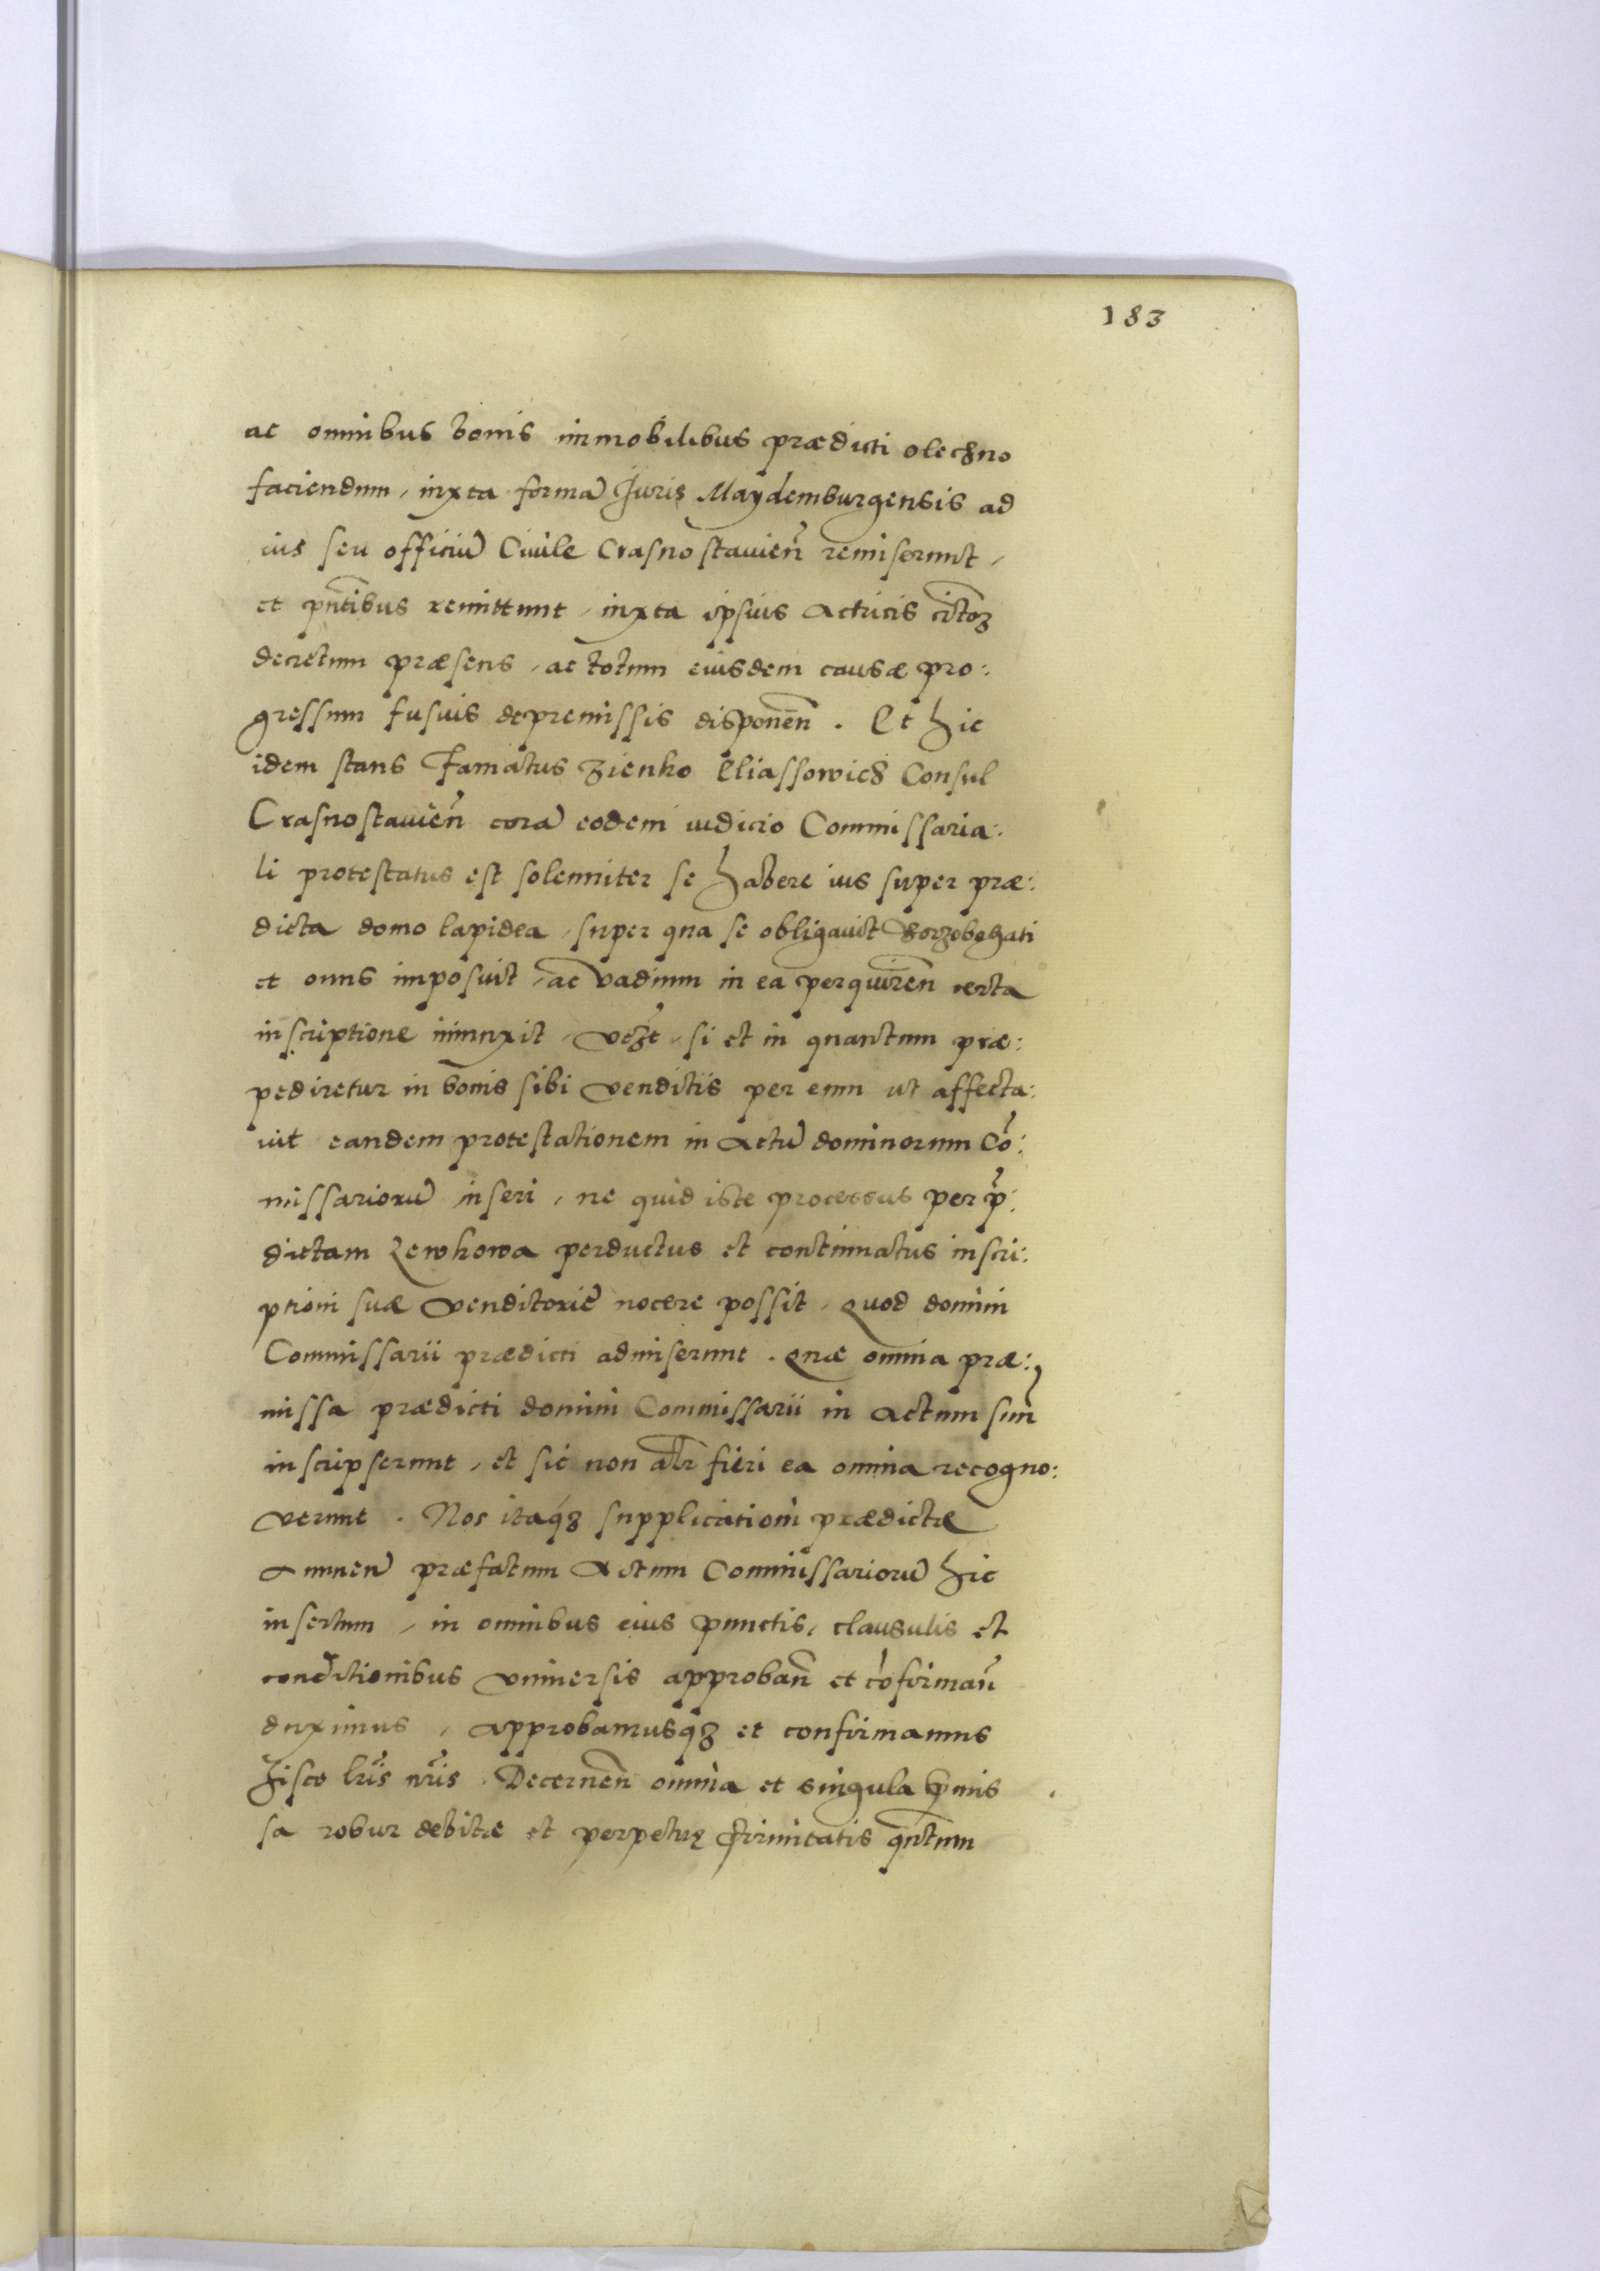 183
ac omnibus bonis immobilibus prædicti olechno
faciendum, iuxta formā Juris Maydemburgensis ad
ius seu officiū Ciuile Crasnostauieñ remiserunt,
et pñtibus remittunt, iuxta ipsius actricis
decretum præsens, ac totum eiusdem causæ pro:
gressum fusius de premissis disponeñ. Et hic
idem stans Famatus Zienko Eliassowicz Consul
Crasnostauieñ corā eodem iudicio Commissaria:
li protestatus est solenniter se habere ius super præ:
dicta domo lapidea, super qua se obligauit
et onus imposuit, ac vadium in ea perquireñ certa
inscriptione iniunxit, si et in quantum præ:
pediretur in bonis sibi venditis per eum ut affecta:
uit eandem protestationem in actū dominorum Cō:
missariorū inseri, ne quid iste processus per p̃:
dictam Lewkowa perductus et continuatus inscri:
ptioni suæ venditoriē nocere possit, Quod domini
Commissarii prædicti admiserunt. Quæ omnia præ:
missa prædicti domini Commissarii in actum suū
inscripserunt, et sic non alr̃ fieri ea omnia recogno:
verunt. Nos itaqȝ supplicationi prædictæ
annueñ præfatum Actum Commissariorū hic
insertum, in omnibus eius punctis, clausulis et
conditionibus vniuersis approbañ et cōfirmañ
duximus, approbamusqȝ et confirmamus
hisce lr̃is nr̃is. Decerneñ omnia et singula p̃mis
sa robur debitæ et perpetuę firmitatis q̃ntum